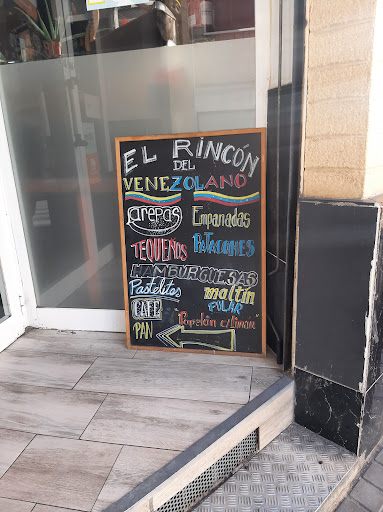 EL RINCÓN
DEL
VENEZOLANO
arepas Empanadas
TEQUEÑOS PATACONES
HAMBURGUESAS
Pastelitos maltin
POLAR
CAFE "Papelón c/Limón"
PAN